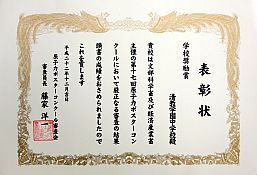 表彰状
学校奨励賞
清教学園中学校殿
貴校は文部科学省及び経済産業省
主催の第十七回原子力ポスターコン
クールにおいて厳正なる審査の結果
頭書の成績をおさめられましたので
これを賞します
平成二十二年十二月吉日
原子力ポスターコンクール審査委員会
審査委員長 藤家洋一